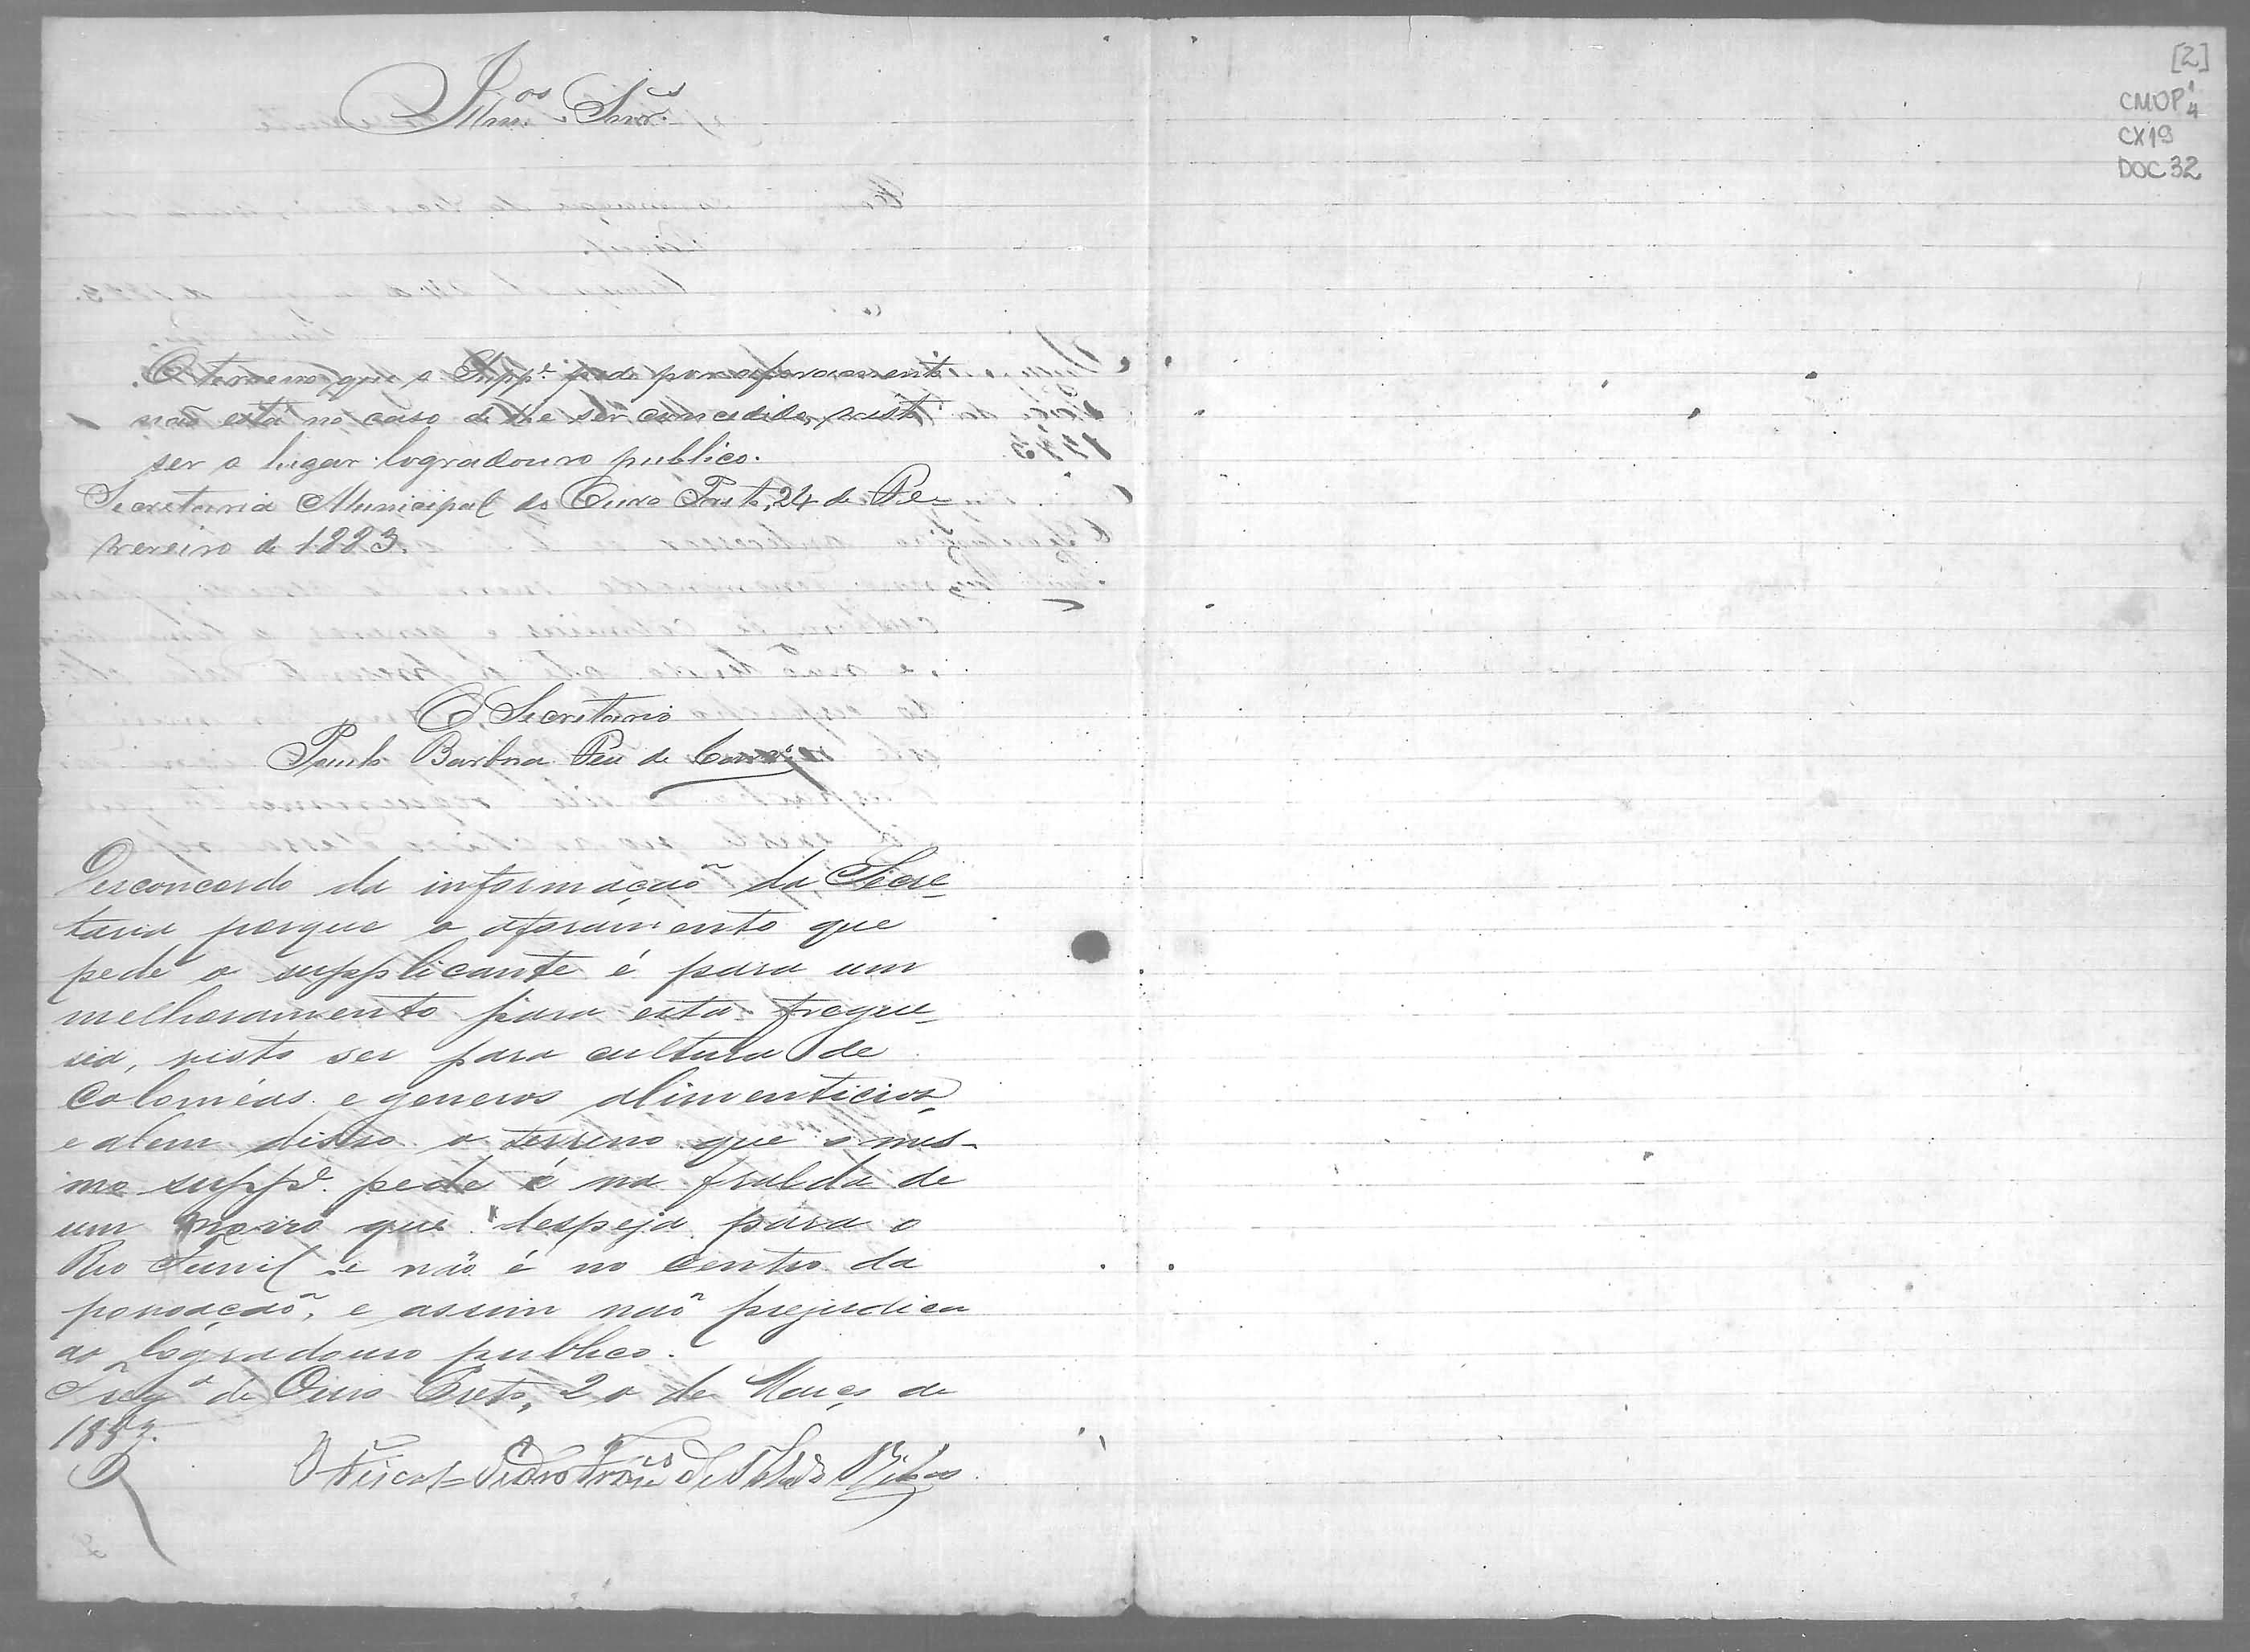 [2]
CMOP 1/4
CX 19
DOC 32
Illmos. Snrs.
O terreno que o Suppe. pede por aforamento
não está no caso de lhe ser concedido, visto
ser o lugar logradouro publico.
Secretaria Municipal do Ouro Preto, 24 de Fe-
vereiro de 1883.
O Secretario
Paulo Barbosa
Desconcordo da informação da Secre-
taria porque o aforamento que
pede o supplicante é para um
melhoramento para esta fregue-
sia, visto ser para cultura de
Coloniáes e generos alimenticios,
e alem disso o terreno que o mes-
mo suppe. pede é na fralda de
um morro que despeja para o
Rio Funil e não é no centro da
povoação, e assim não prejudica
ao logradouro publico.
Fregª de Ouro Preto, 20 de Março de
1883.
O Fiscal = Pedro